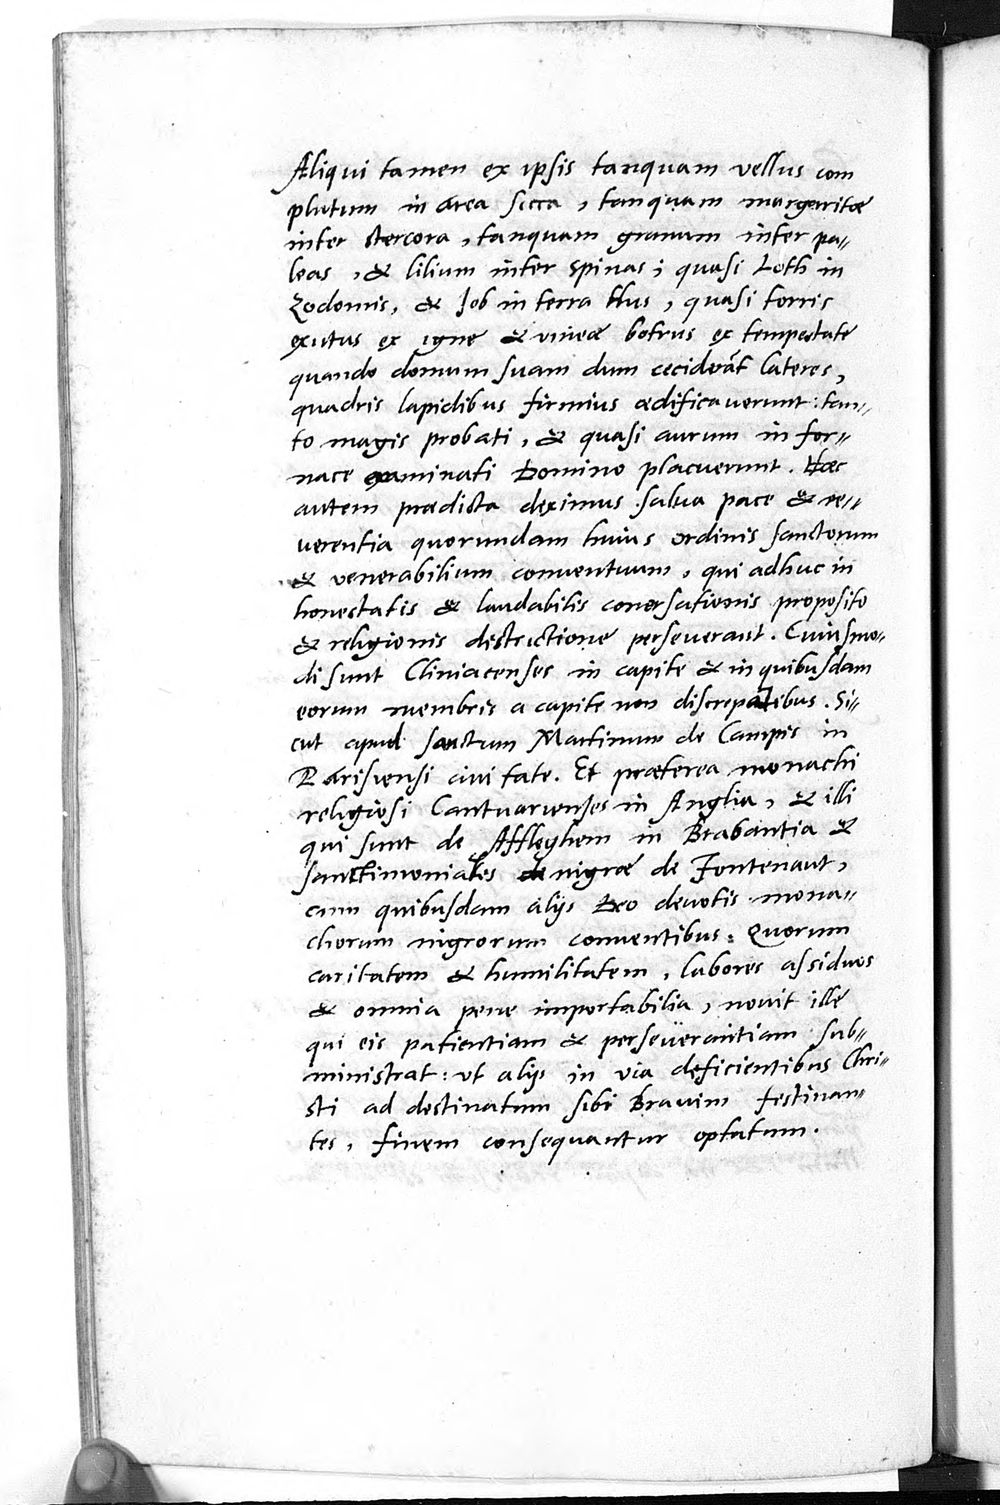 Aliqui tamen ex ipsis tanquam vellus com
plutum in area sicca, tanquam margaritæ
inter stercora, tanquam granum inter pa„
leas, & lilium inter spinas; quasi Loth in
Zodomis, & Job in terra Hus, quasi torris
exutus ex igne & vineæ botrus ex tempestate
quando domum suam dum ceciderāt lateres,
quadris lapidibus firmius ædificaverunt: tan„
to magis probati, & quasi aurum in for„
nace examinati Domino placuerunt. Hæc
autem prædicta diximus salva pace & re„
verentia quorundam huius ordinis sanctorum
& venerabilium conventuum, qui adhuc in
honestatis & laudabilis conversationis proposito
& religionis districtione perseverant. Cuiusmo„
di sunt Cliniacenses in capite & in quibusdam
eorum membris a capite non discrepātibus. Si„
cut apud sanctum Martinum de Campis in
Parisiensi civitate. Et præterea monachi
religiosi Cantuarienses in Anglia, & illi
qui sunt de Affleghem in Brabantia &
sanctimoniales nigræ de Fontenaut,
cum quibusdam alijs Deo devotis mona„
chorum nigrorum conventibus: Quorum
caritatem & humilitatem, labores assiduos
& omnia pene importabilia, novit ille
qui eis patientiam & perseverantiam sub„
ministrat: ut alijs in via deficientibus Chri„
sti ad destinatum sibi Bravium festinan„
tes, finem consequantur optatum.